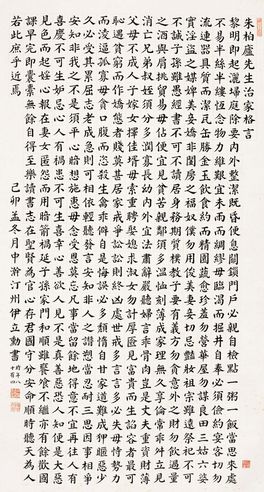 朱柏廬先生治家格言
黎明即起灑埽庭除要內外整潔既昏便息關鎖門戶必親自檢點一粥一飯當思來處
不易半絲半縷恆念物力維艱宜未雨而綢繆毋臨渴而掘井自奉必須儉約宴客切勿
流連器具質而潔瓦缶勝金玉飲食約而精園蔬愈珍饈勿營華屋勿謀良田三姑六婆
實淫盜之媒婢美妾嬌非閨房之福奴僕勿用俊美妻妾切忌豔妝祖宗雖遠祭祀不可
不誠子孫雖愚經書不可不讀居身務期質樸教子要有義方勿貪意外之財勿飲過量
之酒與肩挑貿易毋佔便宜見貧苦親鄰須多溫恤刻薄成家理無久享倫常乖舛立見
消亡兄弟叔姪須分多潤寡長幼內外宜法肅辭嚴聽婦言乖骨肉豈是丈夫重資財薄
父母不成人子嫁女擇佳壻毋索重聘娶媳求淑女勿計厚奩見富貴而生諂容者最可
恥遇貧窮而作驕態者賤莫甚居家戒爭訟訟則終凶處世戒多言言多必失毋恃勢力
而凌逼孤寡毋貪口腹而恣殺生禽乖僻自是悔誤必多頹惰自甘家道難成狎暱惡少
久必受其累屈志老成急則可相依輕聽發言安知非人之譖愬當忍耐三思因事相爭
安知非我之不是須平心暗想施惠毋念受恩莫忘凡事當留餘地得意不宜再往人有
喜慶不可生妒忌心人有禍患不可生喜幸心善欲人見不是真善惡恐人知便是大惡
見色而起婬心報在妻女匿怨而用暗箭禍延子孫家門和順雖饔飧不繼亦有餘歡國
課早完即囊橐無餘自得至樂讀書志在聖賢為官心存君國守分安命順時聽天為人
若此庶乎近焉
己卯孟冬月中澣汀州伊立勳書時年八十有四